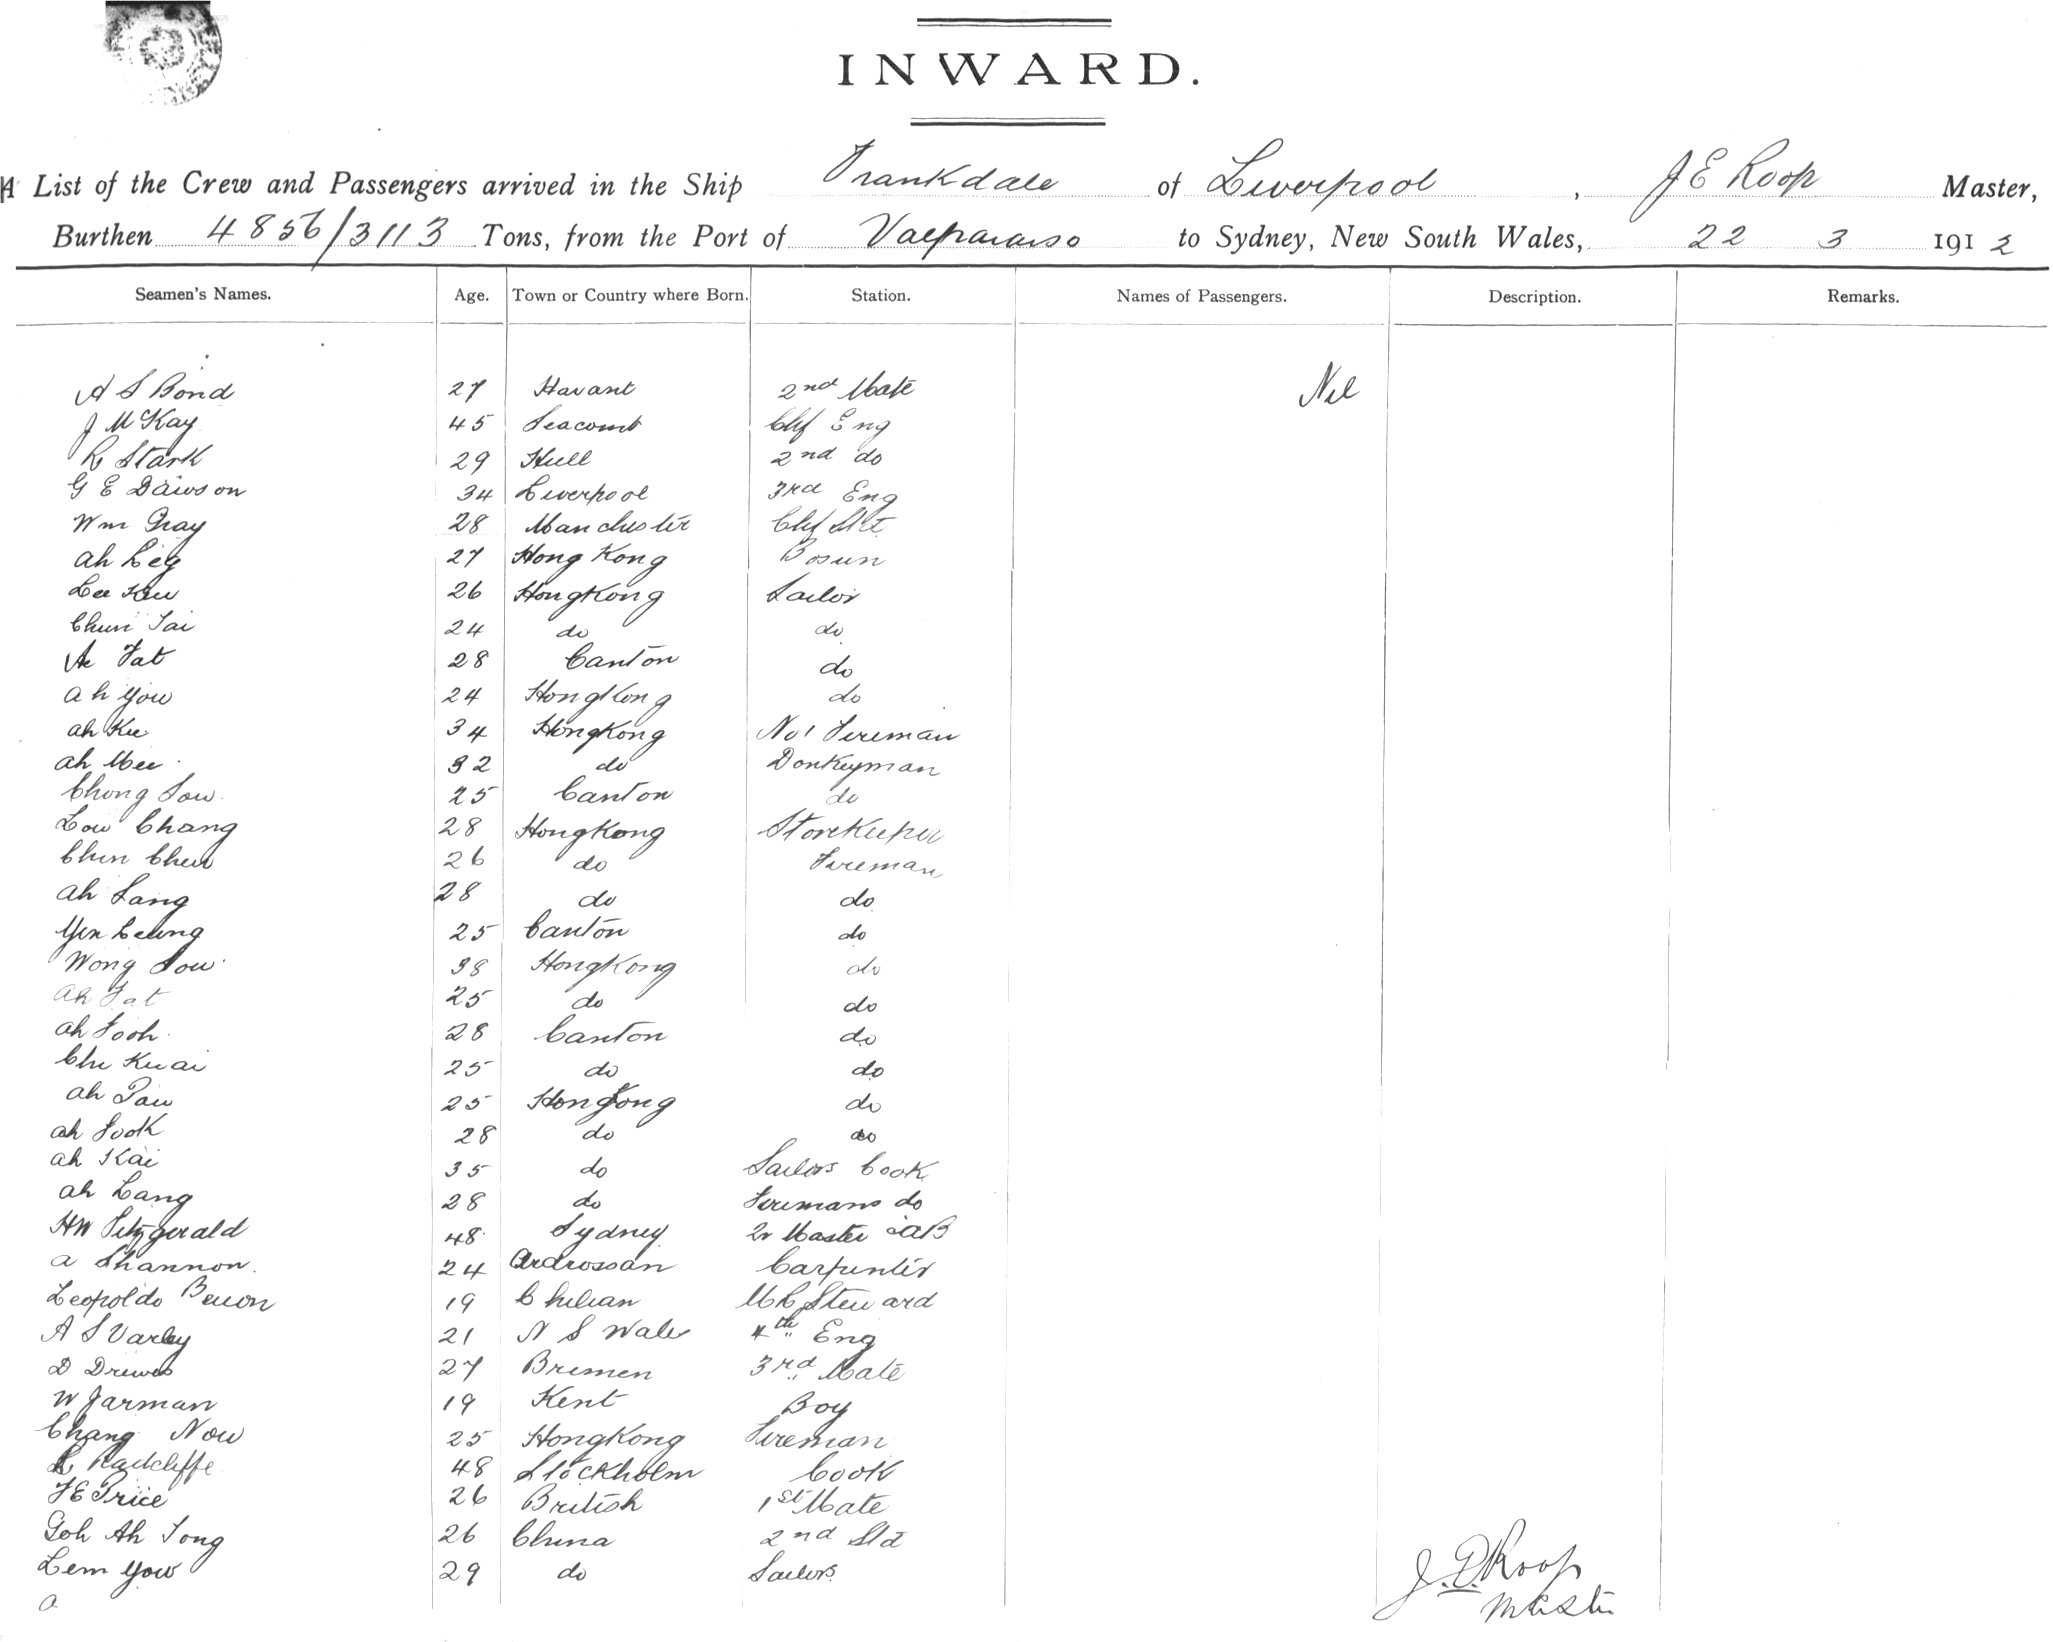 INWARD.
A List of the Crew and Passengers arrived in the Ship Frankdale of Liverpool, J E Roop Master,
Burthen 4856/3113 Tons, from the Port of Valparaiso to Sydney, New South Wales, 22 3 1912
Seamen's Names. Age. Town or Country where Born. Station. Names of Passengers. Description. Remarks.
A S Bond 27 Havant 2nd Mate Nil
J McKay 45 Seacomb Chf Eng
R Stark 29 Hull 2nd do
G E Dawson 34 Liverpool 3rd Eng
Wm Gray 28 Manchester Chf Std
ah Leg 27 Hong Kong Bosun
Lee Kew 26 HongKong Sailor
Chun Tai 24 do do
Ae Fat 28 Canton do
ah You 24 HongKong do
ah Kee 34 HongKong No 1 Fireman
ah Mee 32 do Donkeyman
Chong Sow 25 Canton do
Low Chang 28 HongKong Storekeeper
Chin Chew 26 do Fireman
ah Sang 28 do do
Yen Leung 25 Canton do
Wong Sow 38 HongKong do
ah Fat 25 do do
ah Fooh 28 Canton do
Chu Kuai 25 do do
ah Pau 25 HongKong do
ah Fook 28 do do
ah Kai 35 do Sailors Cook
ah Lang 28 do Firemans do
HW Fitzgerald 48 Sydney Master AB
a Shannon 24 Ardrossan Carpenter
Leopoldo 19 Chilian Steward
A S Varley 21 N S Wales 4th Eng
D Drewes 27 Bremen 3rd Mate
W Jarman 19 Kent Boy
Chang Now 25 HongKong Fireman
Radcliffe 48 Stockholm Cook
F E Price 26 British 1st Mate
Goh Ah Tong 26 China 2nd Std
Lem You 29 do Sailors
a
J. E. Roop
Master